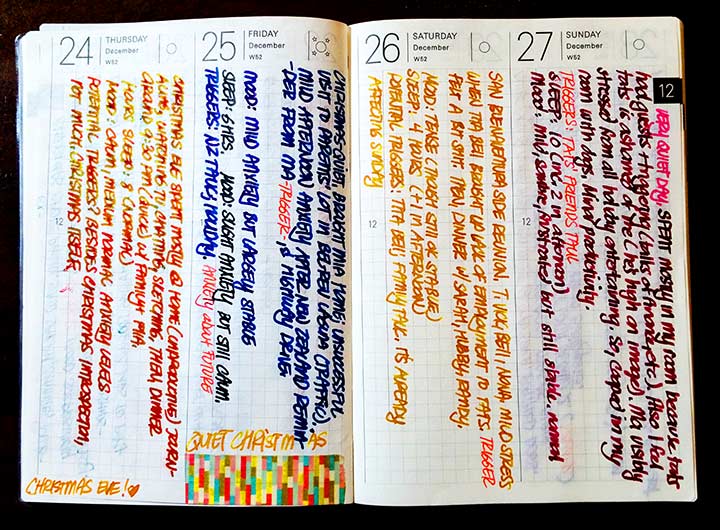 24
THURSDAY
December
W52
12
CHRISTMAS EVE SPENT MOSTLY @ HOME (UNPRODUCTIVE) JOURN-
ALING, CHATTING, SKETCHING, THEN DINNER
AROUND 9:30 PM W/ FAMILY + MA.
HOURS SLEEP: 8 (NORMAL)
MOOD: CALM, MEDIUM NORMAL ANXIETY LEVELS
POTENTIAL TRIGGERS? BESIDES CHRISTMAS INTROSPECTION,
NOT MUCH. CHRISTMAS ITSELF.
CHRISTMAS EVE!
25
FRIDAY
December
W52
CHRISTMAS - QUIET BREAKFAST (MA, UNSUCCESSFUL
VISIT TO PARENTS' LOT IN (TRAFFIC).
MILD AFTERNOON ANXIETY AFTER NEW ZEALAND REMIN-
DER FROM MA - TRIGGER -, & HIGHWAY DRIVE.
MOOD: MILD ANXIETY BUT LARGELY STABLE
SLEEP: 6 HRS. MOOD: SLIGHT ANXIETY, BUT STILL CALM.
TRIGGERS: NZ TALK, HOLIDAY, ANXIETY ABOUT FUTURE
QUIET CHRISTMAS
26
SATURDAY
December
W52
12
SAN BUENAVENTURA SIDE REUNION. T. TITA BETI, NONA. MILD STRESS
WHEN TITA BETI BROUGHT UP LACK OF EMPLOYMENT TO TATS TRIGGER
FELT A BIT SHIT. THEN DINNER W/ SARAH, FAMILY.
MOOD: TENSE (THOUGH STILL OK STABLE)
SLEEP: 4 HOURS (+1 IN AFTERNOON)
POTENTIAL TRIGGERS: TITA BETI, FAMILY TALK. IT'S ALREADY
AFFECTING SUNDAY
27
SUNDAY
December
W52
12
VERY QUIET DAY. SPENT MOSTLY in my room because tats
houseguests + triggering (smells of etc). Also I feel
tats is ashamed of me (he's high on image). Ma visibly
stressed from all holiday entertaining. So, cooped in my
room with dogs. Minor productivity.
TRIGGERS: TATS, FRIENDS, TALK
SLEEP: 10 (inc 2 in afternoon)
Mood: Mildly sensitive, frustrated but still stable, normal